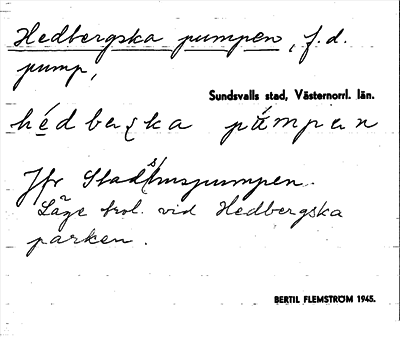 Hedbergska pumpen, f.d.
pump,
Sundsvalls stad, Västernorrl. län.
Jfr Stadshuspumpen.
Läge trol. vid Hedbergska
parken.
BERTIL FLEMSTRÖM 1945.